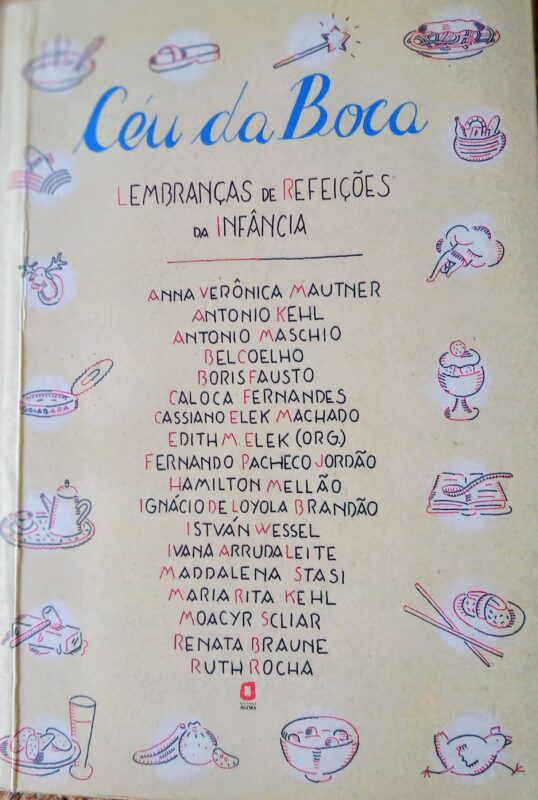 Céu da Boca
LEMBRANÇAS DE REFEIÇÕES
DA INFÂNCIA
ANNA VERÔNICA MAUTNER
ANTONIO KEHL
ANTONIO MASCHIO
BEL COELHO
BORIS FAUSTO
CALOCA FERNANDES
CASSIANO ELEK MACHADO
EDITH M. ELEK (ORG.)
FERNANDO PACHECO JORDÃO
HAMILTON MELLÃO
IGNÁCIO DE LOYOLA BRANDÃO
ISTVÁN WESSEL
IVANA ARRUDA LEITE
MADDALENA STASI
MARIA RITA KEHL
MOACYR SCLIAR
RENATA BRAUNE
RUTH ROCHA
EDITORA
ÁGORA
GOIABADA